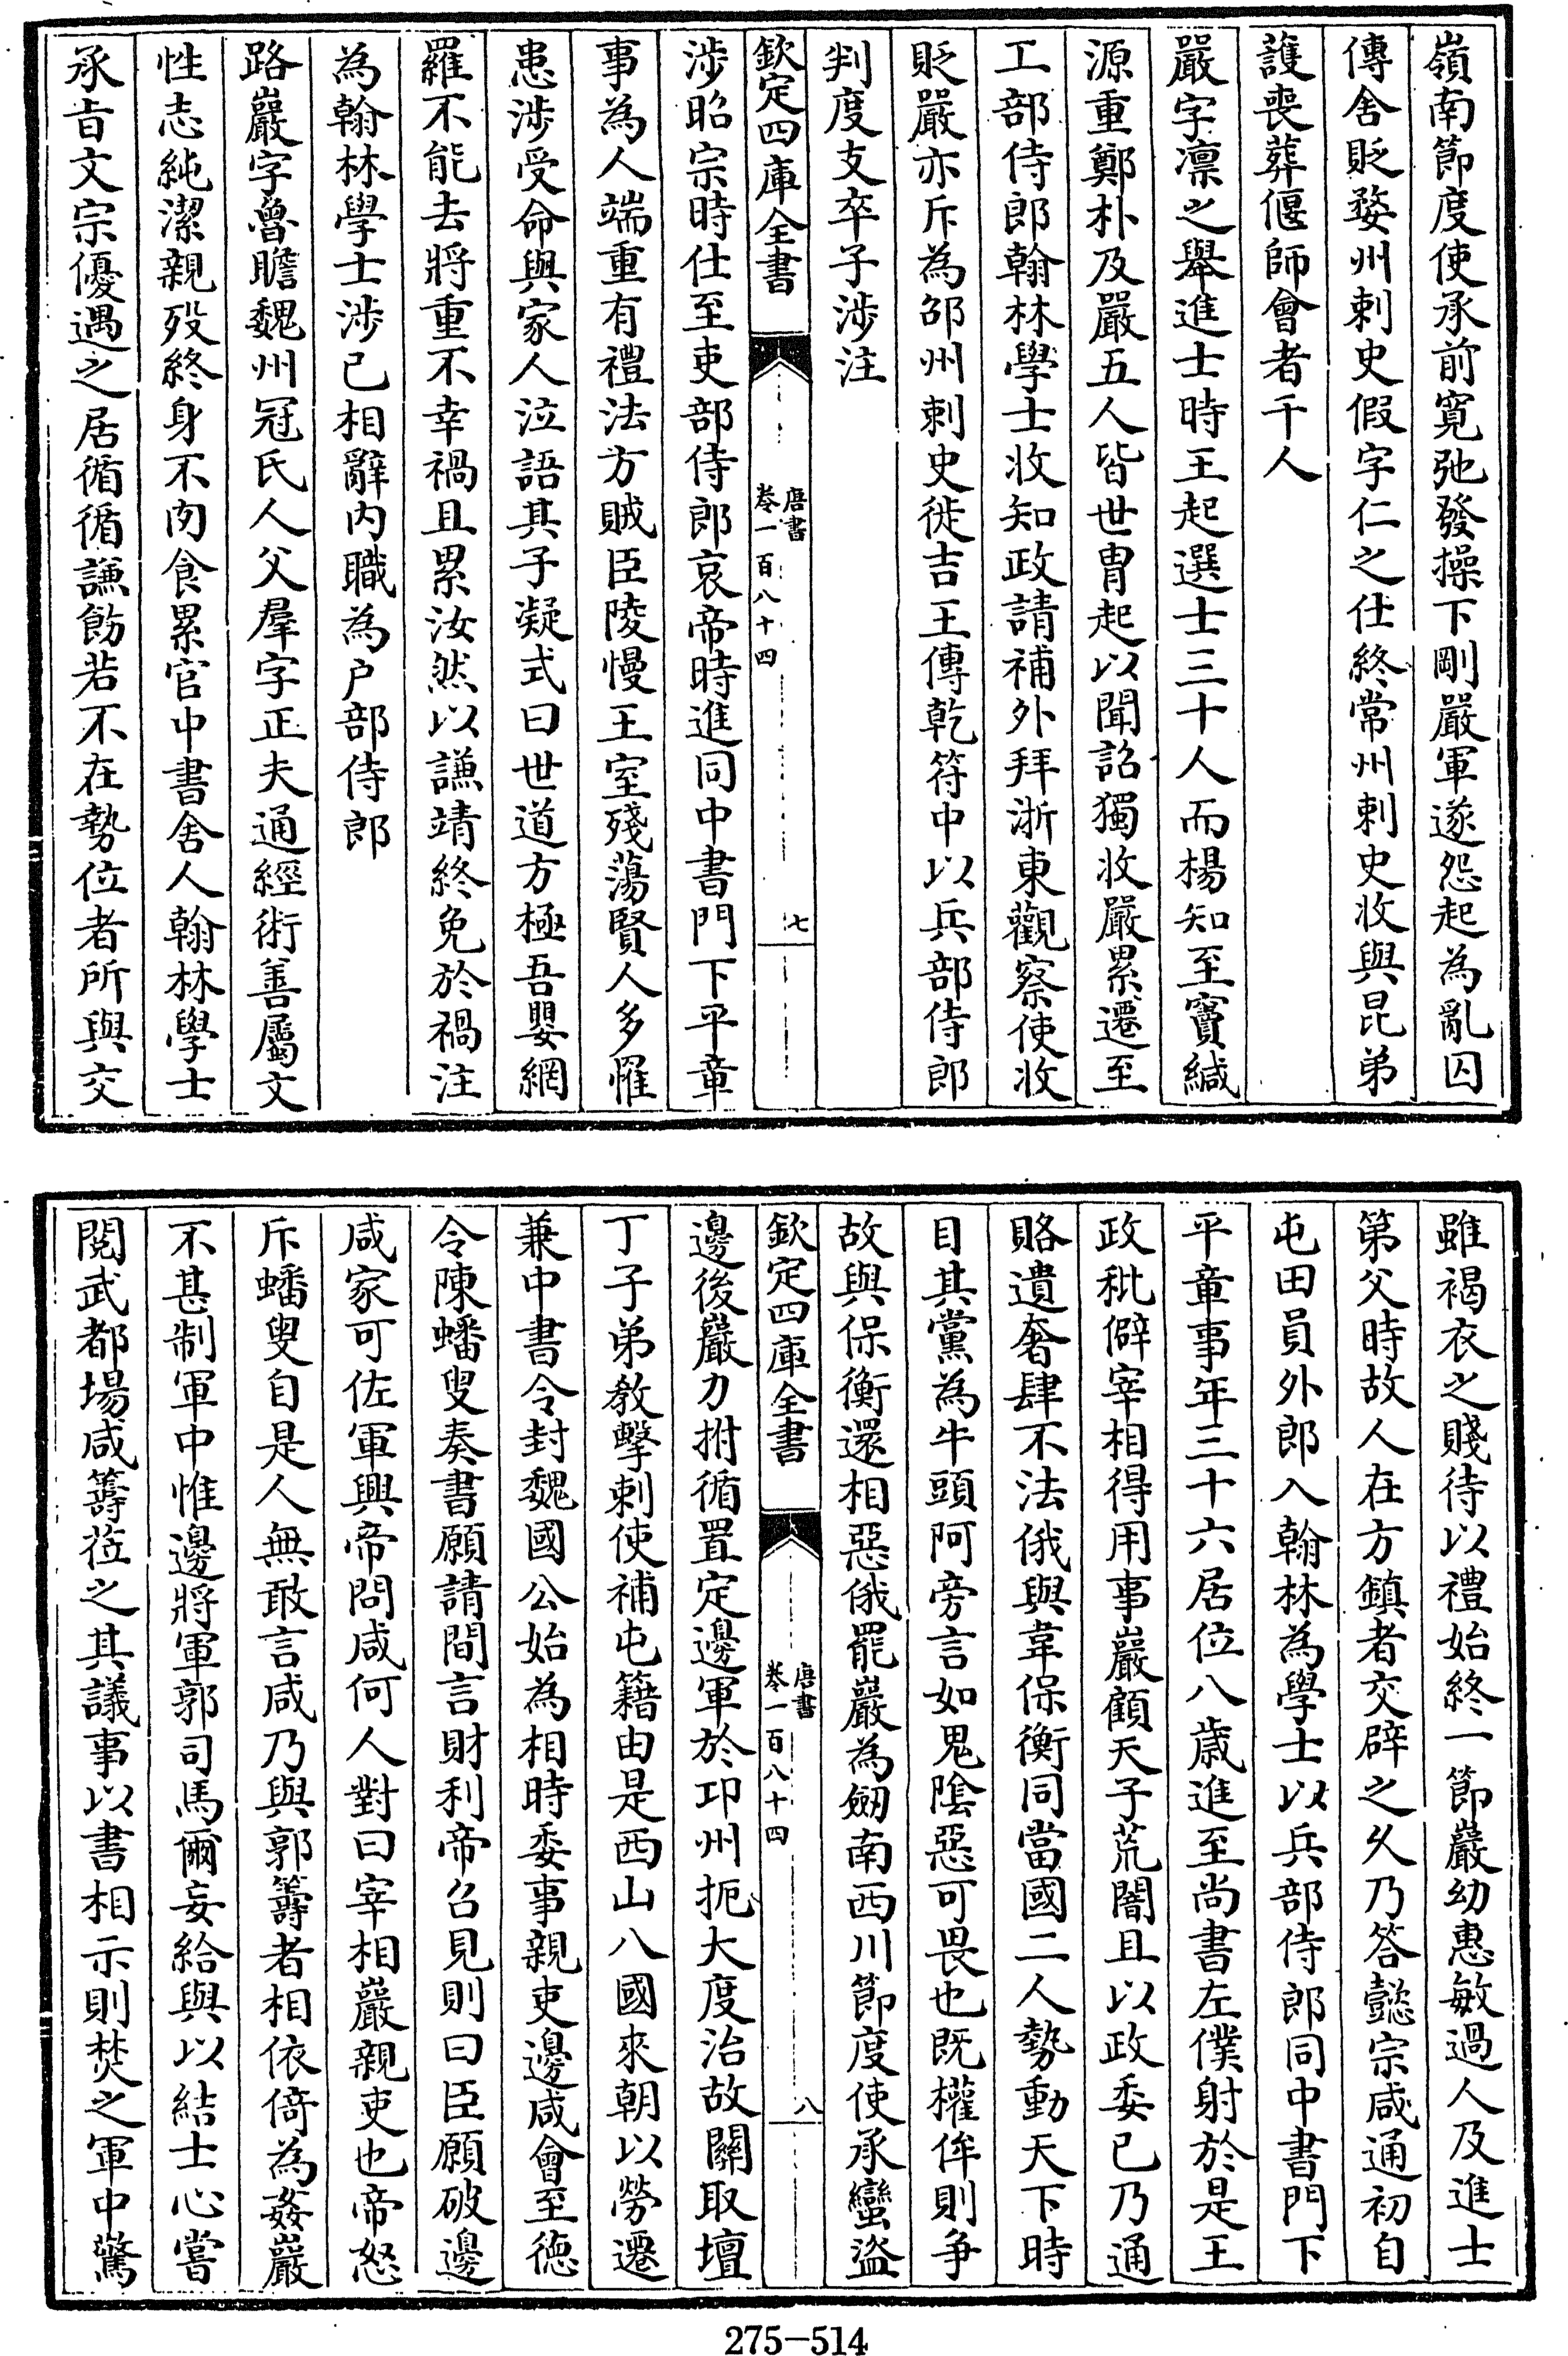 嶺南節度使承前寬弛發操下剛嚴軍遂怨起為亂囚
傳舍貶婺州刺史假字仁之仕終常州刺史收與昆弟
護喪葬偃師會者千人
嚴字凜之舉進士時王起選士三十人而楊知至竇緘
源重鄭朴及嚴五人皆世胄起以聞詔獨收嚴累遷至
工部侍郎翰林學士收知政請補外拜浙東觀察使收
貶嚴亦斥為邵州刺史徙吉王傅乾符中以兵部侍郎
判度支卒子涉注
欽定四庫全書
唐書
卷一百八十四
七
涉昭宗時仕至吏部侍郎哀帝時進同中書門下平章
事為人端重有禮法方賊臣陵慢王室殘蕩賢人多罹
患涉受命與家人泣語其子凝式曰世道方極吾嬰網
羅不能去將重不幸禍且累汝然以謙靖終免於禍注
為翰林學士涉已相辭內職為戶部侍郎
路巖字魯瞻魏州冠氏人父羣字正夫通經術善屬文
性志純潔親歿終身不肉食累官中書舍人翰林學士
承旨文宗優遇之居循循謙飭若不在勢位者所與交
雖褐衣之賤待以禮始終一節巖幼惠敏過人及進士
第父時故人在方鎮者交辟之久乃答懿宗咸通初自
屯田員外郎入翰林為學士以兵部侍郎同中書門下
平章事年三十六居位八歲進至尚書左僕射於是王
政秕僻宰相得用事巖顧天子荒闇且以政委己乃通
賂遺奢肆不法俄與韋保衡同當國二人勢動天下時
目其黨為牛頭阿旁言如鬼陰惡可畏也既權侔則爭
故與保衡還相惡俄罷巖為劒南西川節度使承蠻盜
欽定四庫全書
唐書
卷一百八十四
八
邊後巖力拊循置定邊軍於邛州扼大度治故關取壇
丁子弟教擊刺使補屯籍由是西山八國來朝以勞遷
兼中書令封魏國公始為相時委事親吏邊咸會至德
令陳蟠叟奏書願請間言財利帝召見則曰臣願破邊
咸家可佐軍興帝問咸何人對曰宰相巖親吏也帝怒
斥蟠叟自是人無敢言咸乃與郭籌者相依倚為姦巖
不甚制軍中惟邊將軍郭司馬爾妄給與以結士心嘗
閱武都場咸籌莅之其議事以書相示則焚之軍中驚
275-514